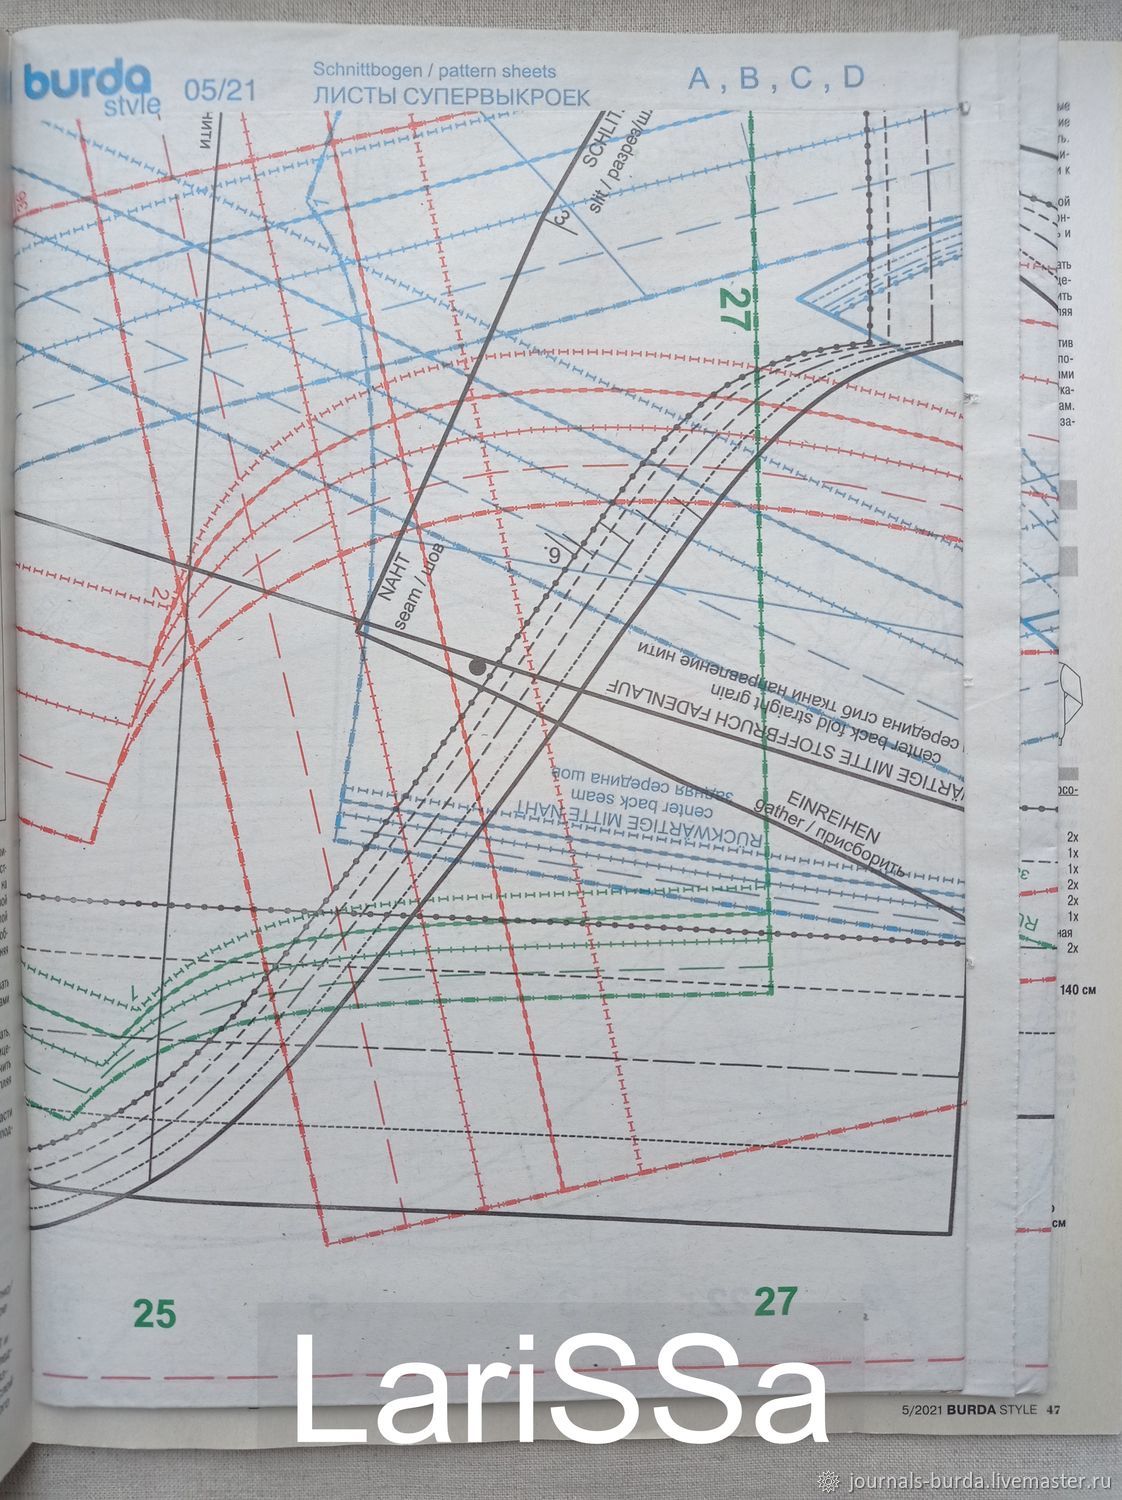 burda
style
05/21
Schnittbogen / pattern sheets
ЛИСТЫ СУПЕРВЫКРОЕК
A, B, C, D
НИТИ
SCHLIT
slit / разрез/ш
3
27
21
6
NAHT
seam / шов
середина сгиб ткани направление нити
center back fold straight grain
WÄRTIGE MITTE STOFFBRUCH FADENLAUF
задняя середина шов
center back seam
RÜCKWÄRTIGE MITTE NAHT
EINREIHEN
gather / присборить
7
2x
1x
1x
2x
2x
1x
2x
140 см
25
27
LariSSa
5/2021 BURDA STYLE 47
journals-burda.livemaster.ru